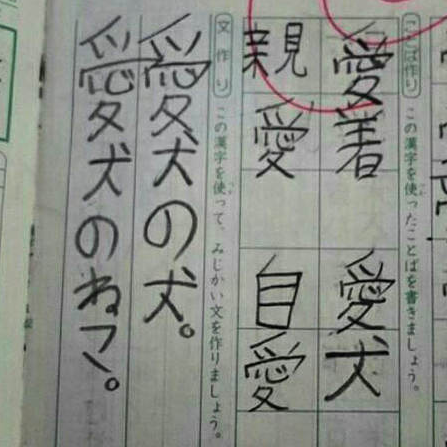 ことば作り この漢字を使ったことばを書きましょう。
愛着 愛犬
親愛 自愛
文作り この漢字を使って、みじかい文を作りましょう。
愛犬の犬。
愛犬のねこ。